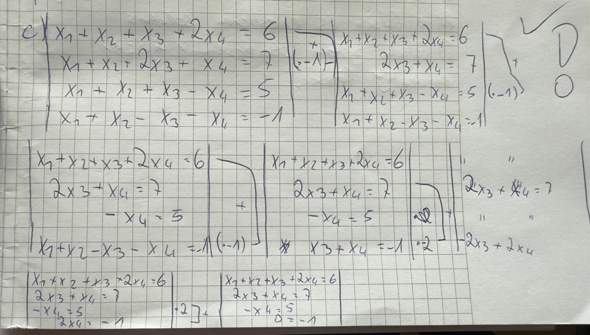 c) x1 + x2 + x3 + 2x4 = 6
x1 + x2 + 2x3 + x4 = 7
x1 + x2 + x3 - x4 = 5
x1 + x2 - x3 - x4 = -1
+
(·-1)
x1+x2+x3+2x4=6
2x3+x4=7
x1+x2+x3-x4=5 (·-1)
x1+x2-x3-x4=-1
+
x1+x2+x3+2x4=6
2x3+x4=7
-x4=5
x1+x2-x3-x4=-1 (·-1)
+
x1+x2+x3+2x4=6
2x3+x4=7
-x4=5
x3+x4=-1 ·2
+
" "
2x3+x4=7
" "
-2x3+2x4
x1+x2+x3+2x4=6
2x3+x4=7
-x4=5 ·2
2x4=-1
+
x1+x2+x3+2x4=6
2x3+x4=7
-x4=5
0=-1